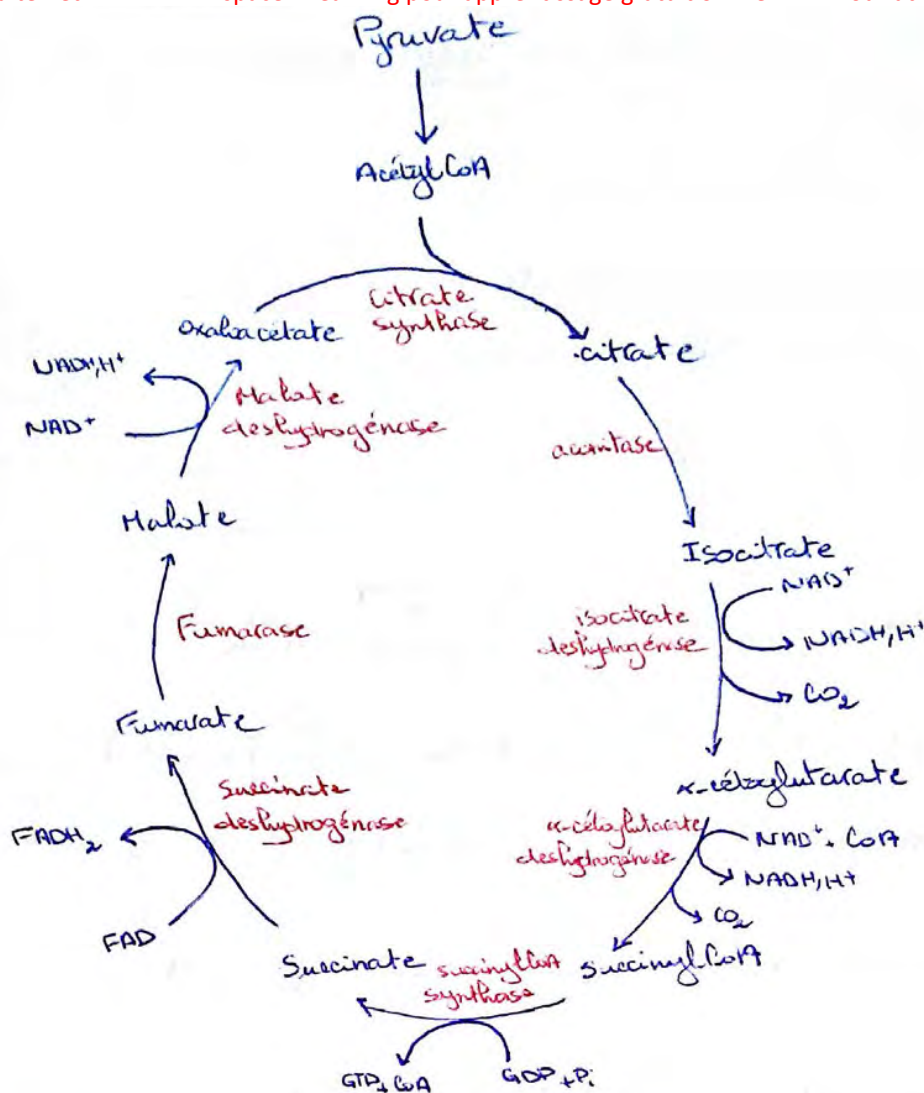 Pyruvate
Acétyl CoA
Citrate
synthase
Oxaloacétate
citrate
NADH,H⁺
NAD⁺
Malate
deshydrogénase
aconitase
Malate
Isocitrate
NAD⁺
isocitrate
deshydrogénase
NADH,H⁺
CO₂
Fumarase
Fumarate
α-cétoglutarate
Succinate
deshydrogénase
FADH₂
FAD
α-cétoglutarate
deshydrogénase
NAD⁺ + CoA
NADH,H+
CO₂
Succinate
succinyl CoA
synthase
Succinyl CoA
GTP + CoA
GDP + Pi